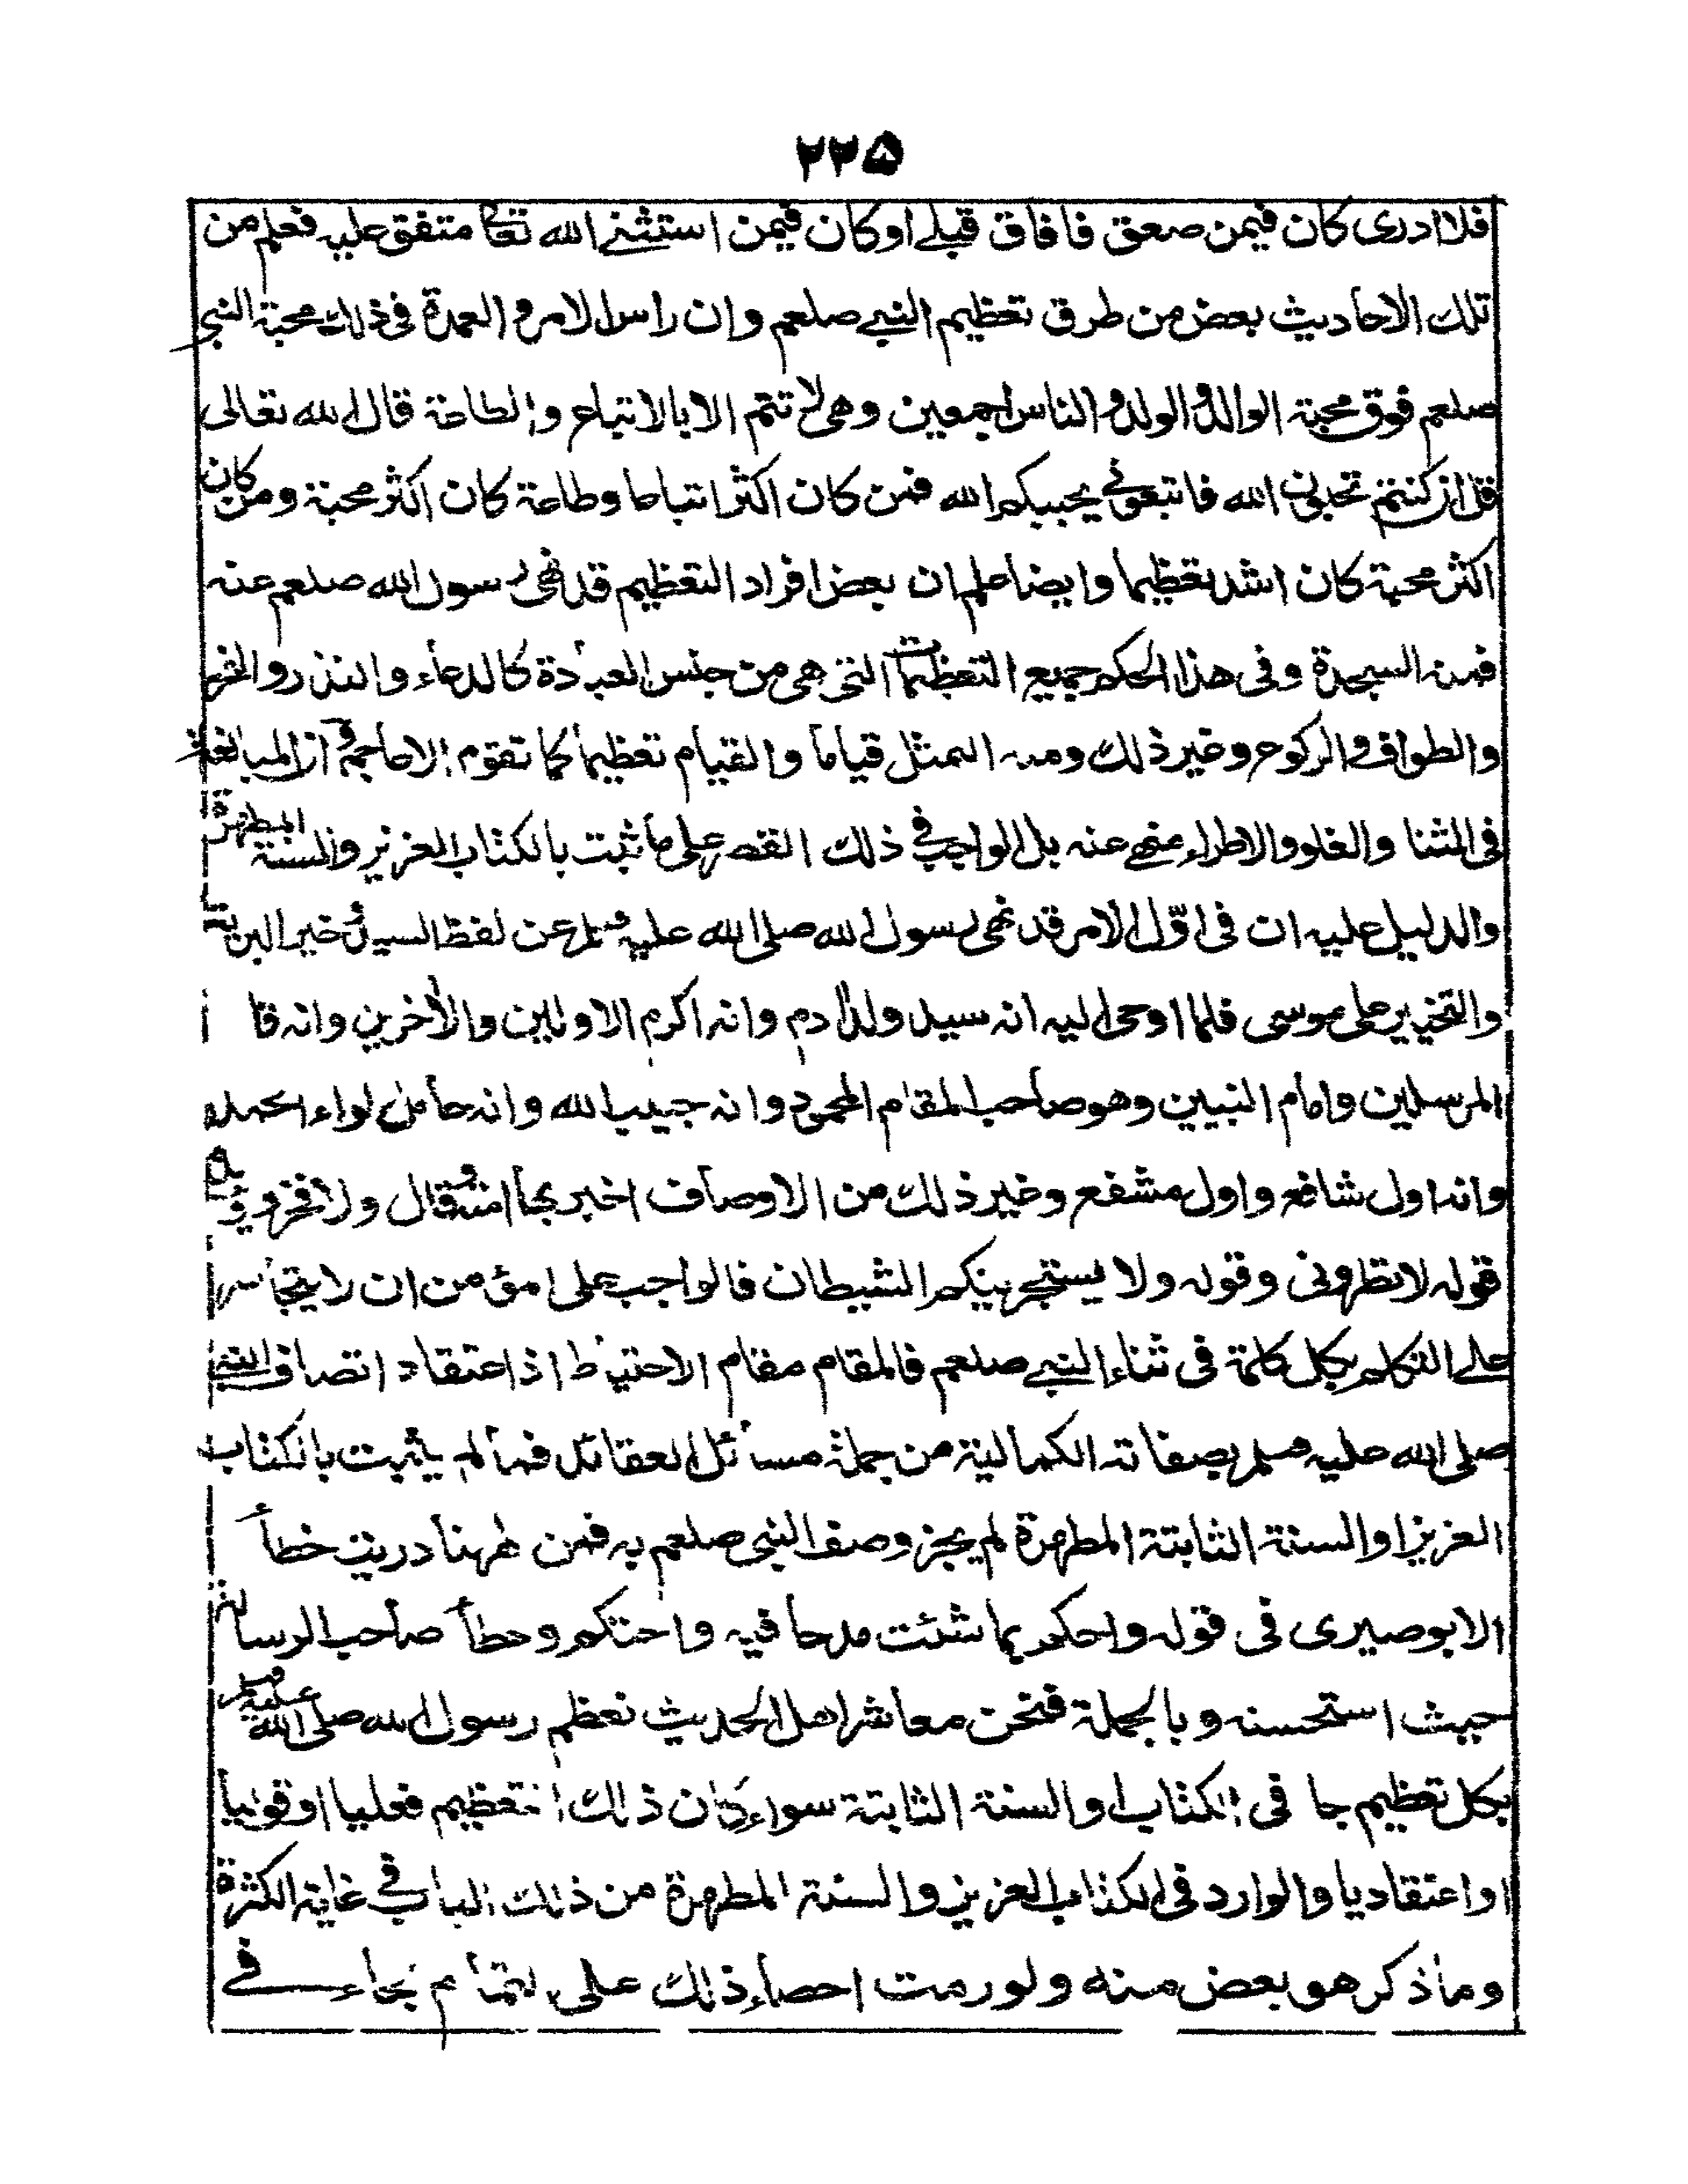 ٢٢٥
فلا ادرى كان فيمن صعق فافاق قبلے او كان فيمن استثنے الله تعا متفق عليه فعلم من
تلك الاحاديث بعض من طرق تعظيم النبے صلعم وان راس الامر و العمدة فى ذلك محبة النبى
صلعم فوق محبة الوالد و الولد و الناس اجمعين وهى لا تتم الا بالاتباع والطاعة قال الله تعالى
قل ان كنتم تحبون الله فاتبعونے يحببكم الله فمن كان اكثر اتباعا وطاعة كان اكثر محبة ومن كان
اكثر محبة كان اشد تعظيما وايضا علم ان بعض افراد التعظيم قد نهى رسول الله صلعم عنه
فمنه السجدة وفى هذا الحكم جميع التعظيمات التى هى من جنس العبادة كالدعاء والنذر والنحر
والطواف والركوع وغير ذلك ومنه التمثل قياما والقيام تعظيما كما تقوم الاعاجم و ان المبالغة
فى الثنا والغلو والاطراء منهى عنه بل الواجب فے ذلك القصر على ما ثبت بالكتاب العزيز والسنة المطهرة
والدليل عليه ان فى اوّل الامر قد نهى رسول الله صلى الله عليه وسلم عن لفظ السيد و خير البرية
والتخيير على موسى فلما اوحى اليه انه سيد ولد آدم وانه اكرم الاولين والآخرين وانه قا
المرسلين وامام النبيين وهو صاحب المقام المحمود وانه حبيب الله وانه حامل لواء الحمد
وانه اول شافع واول مشفع وغير ذلك من الاوصاف اخبر بها امته وقال ولا فخر ويؤيده
قوله لا تطرونى وقوله ولا يستجرينكم الشيطان فالواجب على امؤمن ان لا يتجاسر
علے التكلم بكل كلمة فى ثناء النبے صلعم فالمقام مقام الاحتياط اذ اعتقاد اتصاف النبے
صلى الله عليه وسلم بصفاته الكمالية من جملة مسائل العقائد فما لم يثبت بالكتاب
العزيز او السنة الثابتة المطهرة لم يجز وصف النبى صلعم به فمن ههنا دريت خطأ
الابوصيرى فى قوله واحكم بما شئت مدحا فيه واحتكم وخطأ صاحب الرسالة
حيث استحسنه وبالجملة فنحن معاشر اهل الحديث نعظم رسول الله صلى الله عليه وسلم
بكل تعظيم جا فى الكتاب او السنة الثابتة سواء كان ذلك التعظيم فعليا او قوليا
او اعتقاديا والوارد فى الكتاب العزيز والسنة المطهرة من ذلك الباب فے غاية الكثرة
وما ذكر هو بعض منه ولو رمت احصاء ذلك على التمام لجاء فے